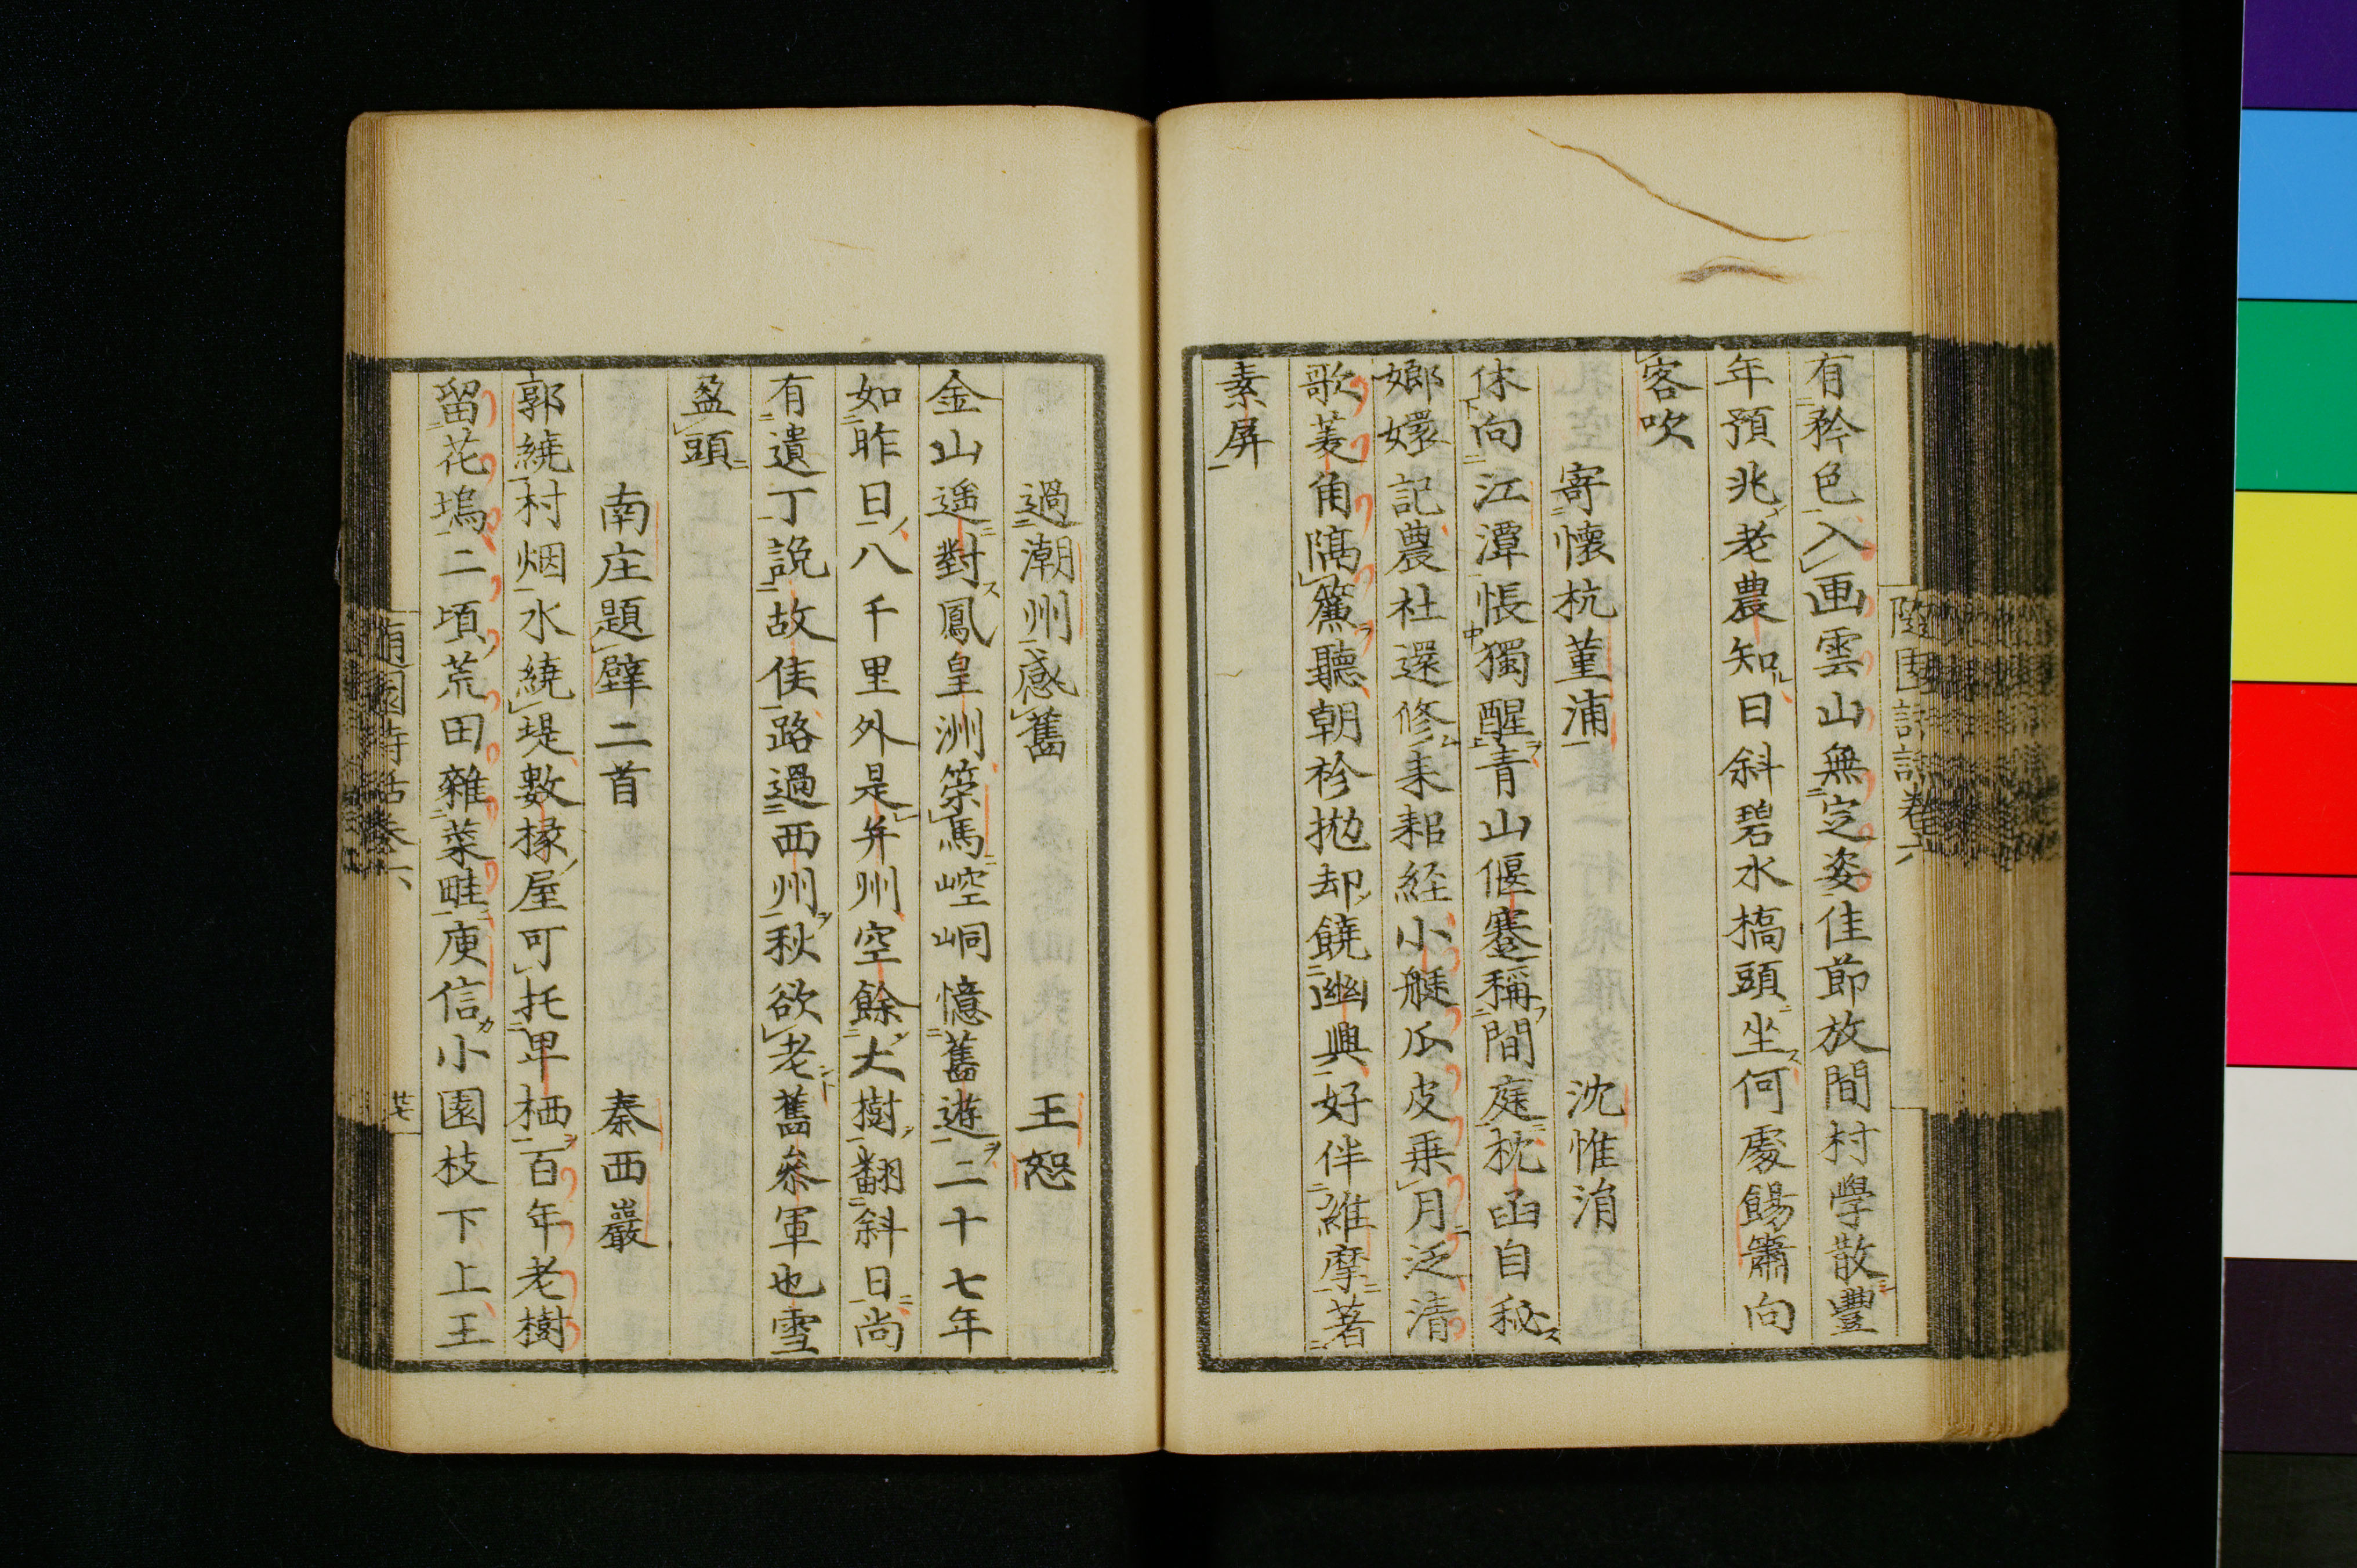 有矜色入画雲山無定姿佳節放間村學散豐
年預兆老農知日斜碧水橋頭坐何處餳簫向
客吹
寄懷杭菫浦　沈惟涓
休向江潭悵獨醒青山偃蹇稱間庭枕函自秘
嫏嬛記農社還修耒耜経小艇瓜皮乗月泛清
歌菱角隔簾聽朝衫拋却饒幽興好伴維摩著
素屏
過潮州感舊　王恕
金山遥對鳳皇洲筞馬崆峒憶舊遊二十七年
如昨日八千里外是弁州空餘大樹翻斜日尚
有遺丁說故侯路過西州秋欲老舊叅軍也雪
盈頭
南庄題壁二首　秦西巖
郭繞村烟水繞堤數椽屋可托卑栖百年老樹
留花塢二頃荒田雜菜畦庾信小園枝下上王
隨園詩話卷六
隨園詩話卷六
廿七